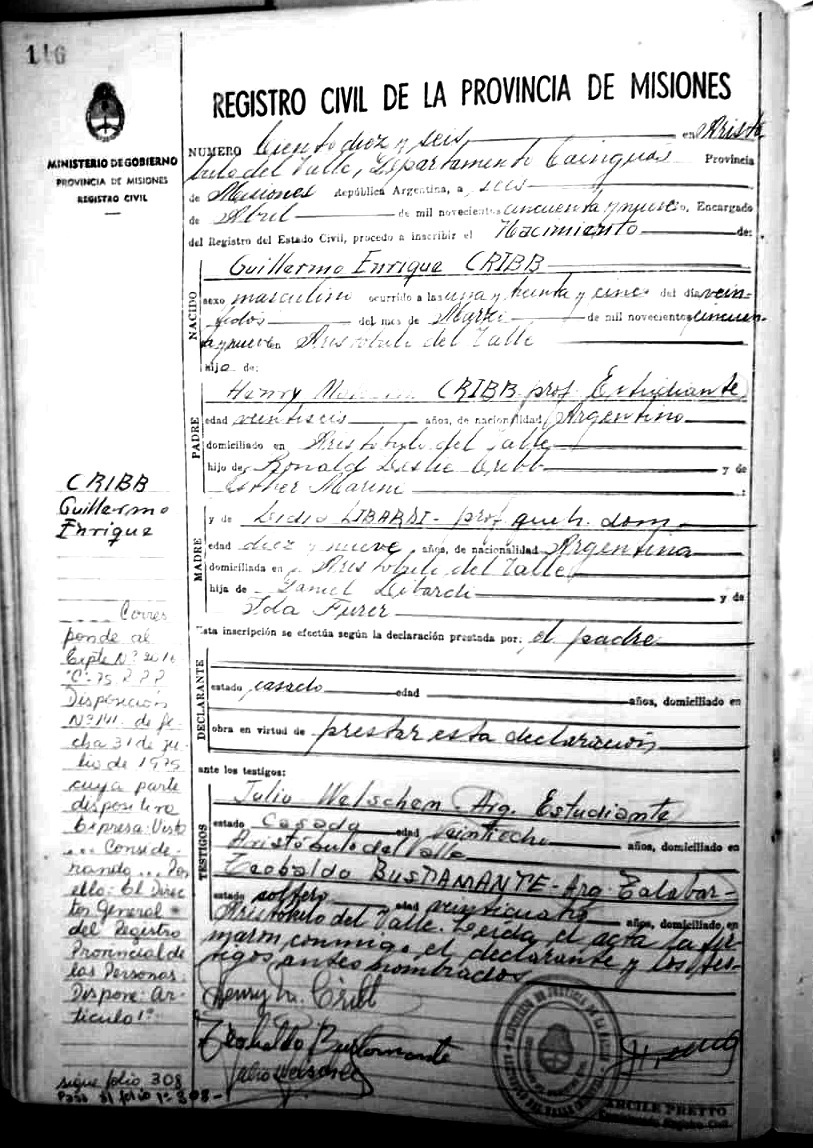 116
MINISTERIO DE GOBIERNO
PROVINCIA DE MISIONES
REGISTRO CIVIL
REGISTRO CIVIL DE LA PROVINCIA DE MISIONES
NUMERO Ciento diez y seis en Aristó
bulo del Valle, Departamento Cainguás Provincia
de Misiones República Argentina, a seis
de Abril de mil novecientos cincuenta y nueve, Encargado
del Registro del Estado Civil, procedo a inscribir el Nacimiento de:
NACIDO
Guillermo Enrique CRIBB
sexo masculino ocurrido a las una y treinta y cinco del día vein-
tidos del mes de Marzo de mil novecientos cincuen-
ta y nueve en Aristóbulo del Valle
hijo de:
PADRE
Henry CRIBB prof. Estudiante
edad veintiseis años, de nacionalidad Argentino
domiciliado en Aristobulo del Valle
hijo de Ronald Leslie Cribb y de
Esther Marini
MADRE
y de Lidia LIBARDI - prof. queh. dom.
edad diez y nueve, años, de nacionalidad Argentina
domiciliada en Aristobulo del Valle
hija de Daniel Libardi y de
Ida Furer
Esta inscripción se efectúa según la declaración prestada por: el padre
DECLARANTE
estado casado edad años, domiciliado en
obra en virtud de prestar esta declaración
ante los testigos:
TESTIGOS
Julio Welschen Arg. Estudiante
estado Casado edad veintiocho años, domiciliado en
Aristóbulo del Valle
Teobaldo BUSTAMANTE - Arg. Talabar-
estado soltero edad veinticuatro años, domiciliado en
Aristobulo del Valle. Leida el acta la fir-
maron conmigo el declarante y los tes-
tigos antes nombrados
Henry M. Cribb
Teobaldo Bustamante
Julio Welschen
ARCILE PRETTO
CRIBB
Guillermo
Enrique
Corres
ponde al
Expte Nº 2016
"C"-75. R.P.P.
Disposición
Nº 141. de fe
cha 31 de ju
lio de 1975
cuya parte
dispositiva
Expresa: Visto
... Conside-
rando ... Por
ello: El Direc
tor General
del Registro
Provincial de
las Personas:
Dispone: Ar-
tículo 1º
sigue folio 308
Pasa al folio 1º 308-